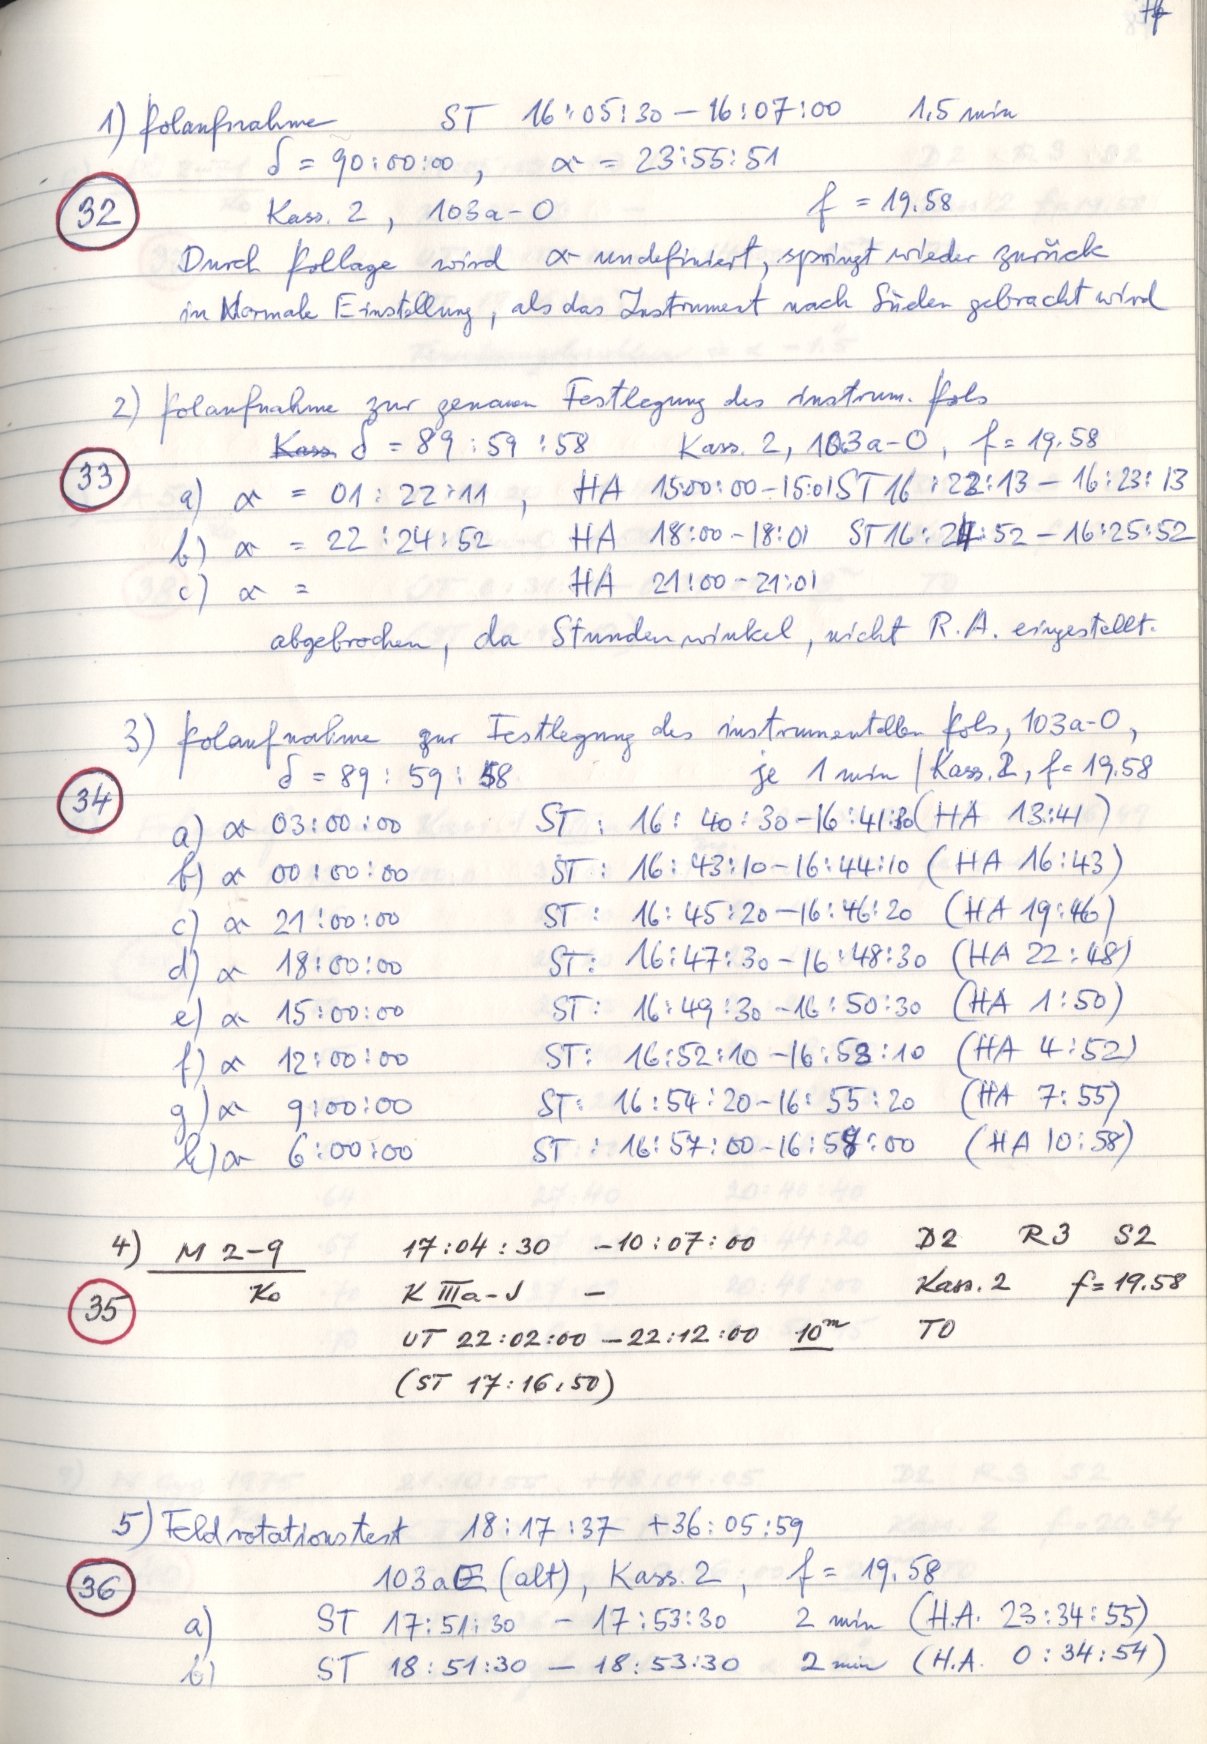 1) Polaufnahme ST 16:05:30 – 16:07:00 1,5 min
δ = 90:00:00, α = 23:55:51
32 Kass. 2, 103a-O f = 19.58
Durch Pollage wird α undefiniert, springt wieder zurück
in Normale Einstellung, als das Instrument nach Süden gebracht wird
2) Polaufnahme zur genauen Festlegung des instrum. Pols
Kass. δ = 89:59:58 Kass. 2, 103a-O, f = 19.58
33
a) α = 01:22:11, HA 15:00:00 – 15:01 ST 16:22:13 – 16:23:13
b) α = 22:24:52 HA 18:00 – 18:01 ST 16:24:52 – 16:25:52
c) α = HA 21:00 – 21:01
abgebrochen, da Stundenwinkel, nicht R.A. eingestellt.
3) Polaufnahme zur Festlegung des instrumentellen Pols, 103a-O,
δ = 89:59:58 je 1 min / Kass. 2, f = 19.58
34
a) α 03:00:00 ST: 16:40:30 – 16:41:30 (HA 13:41)
b) α 00:00:00 ST: 16:43:10 – 16:44:10 (HA 16:43)
c) α 21:00:00 ST: 16:45:20 – 16:46:20 (HA 19:46)
d) α 18:00:00 ST: 16:47:30 – 16:48:30 (HA 22:48)
e) α 15:00:00 ST: 16:49:30 – 16:50:30 (HA 1:50)
f) α 12:00:00 ST: 16:52:10 – 16:53:10 (HA 4:52)
g) α 9:00:00 ST: 16:54:20 – 16:55:20 (HA 7:55)
h) α 6:00:00 ST: 16:57:00 – 16:58:00 (HA 10:58)
4) M 2-9 17:04:30 –10:07:00 D2 R3 S2
Ko K IIIa-J – Kass. 2 f = 19.58
35
UT 22:02:00 – 22:12:00 10ᵐ TO
(ST 17:16:50)
5) Feldrotationstest 18:17:37 +36:05:59
36 103aE (alt), Kass. 2, f = 19.58
a) ST 17:51:30 – 17:53:30 2 min (H.A. 23:34:55)
b) ST 18:51:30 – 18:53:30 2 min (H.A. 0:34:54)